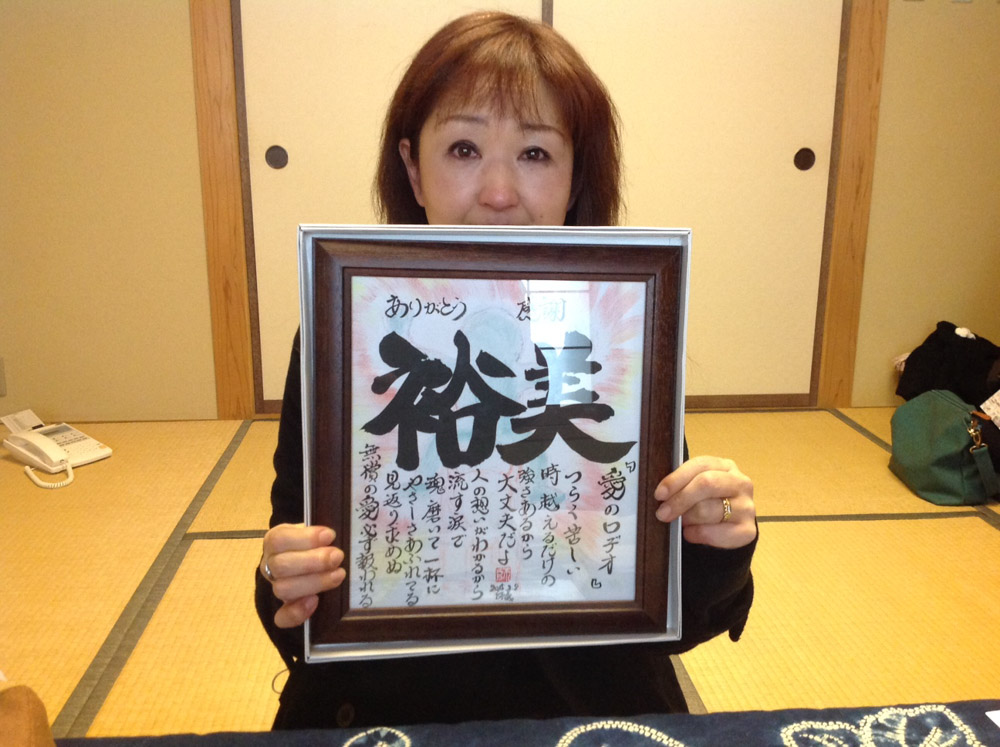 ありがとう 感謝
裕美
『愛のロデオ』
つらく苦しい
時越えるだけの
強さあるから
大丈夫だよ
人の想いがわかるから
流す涙で
魂磨いて一杯に
やさしさあふれてる
見返り求めぬ
無償の愛必ず報われる